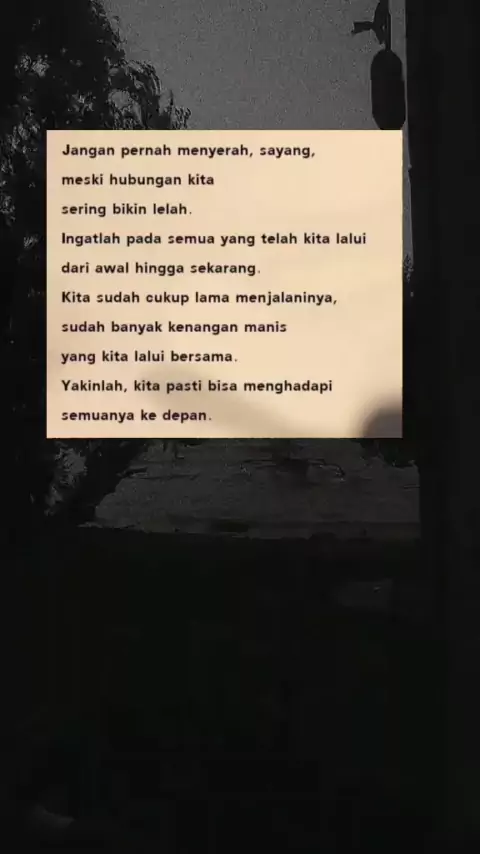 Jangan pernah menyerah, sayang,
meski hubungan kita
sering bikin lelah.
Ingatlah pada semua yang telah kita lalui
dari awal hingga sekarang.
Kita sudah cukup lama menjalaninya,
sudah banyak kenangan manis
yang kita lalui bersama.
Yakinlah, kita pasti bisa menghadapi
semuanya ke depan.